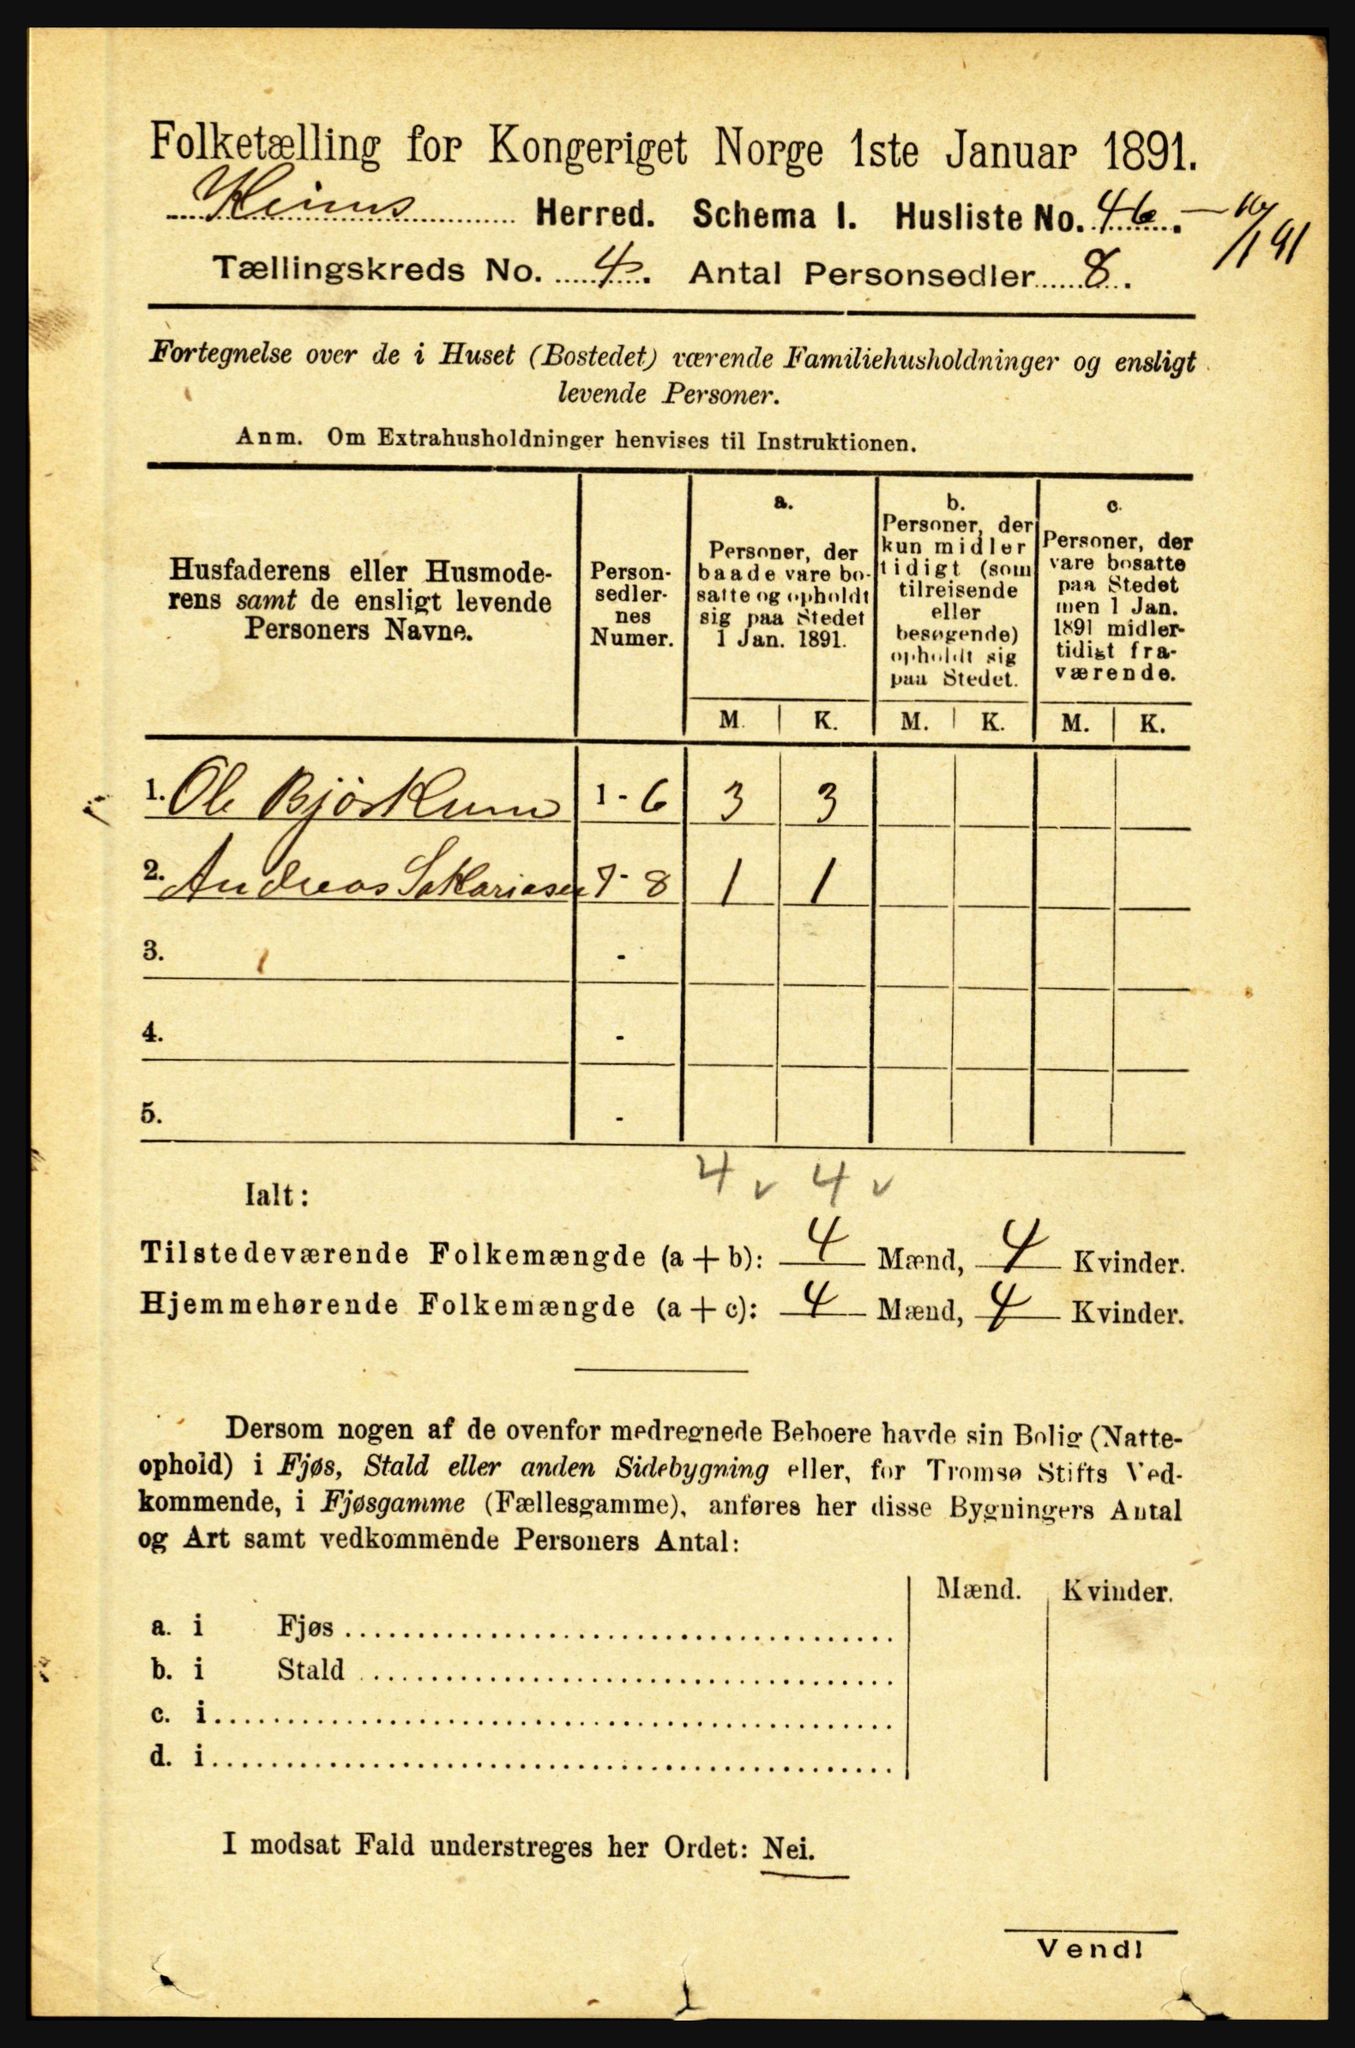 Folketælling for Kongeriget Norge 1ste Januar 1891.
Kinns Herred. Schema I. Husliste No. 46. -
Tællingskreds No. 4. Antal Personsedler 8.
Fortegnelse over de i Huset (Bostedet) værende Familiehusholdninger og ensligt
levende Personer.
Anm. Om Extrahusholdninger henvises til Instruktionen.
Husfaderens eller Husmode-
rens samt de ensligt levende
Personers Navne.
Person-
sedler-
nes
Numer.
a.
Personer, der
baade vare bo-
satte og opholdt
sig paa Stedet
1 Jan. 1891.
b.
Personer, der
kun midler
tidigt (som
tilreisende
eller
besøgende)
opholdt sig
paa Stedet.
c.
Personer, der
vare bosatte
paa Stedet
men 1 Jan.
1891 midler-
tidigt fra-
værende.
M. K. M. K. M. K.
1. Ole Bjørkum 1 - 6 3 3
2. Andreas Sakariasen 7 - 8 1 1
3. -
4. -
5. -
4 v 4 v
Ialt:
Tilstedeværende Folkemængde (a + b): 4 Mænd, 4 Kvinder.
Hjemmehørende Folkemængde (a + c): 4 Mænd, 4 Kvinder.
Dersom nogen af de ovenfor medregnede Beboere havde sin Bolig (Natte-
ophold) i Fjøs, Stald eller anden Sidebygning eller, for Tromsø Stifts Ved-
kommende, i Fjøsgamme (Fællesgamme), anføres her disse Bygningers Antal
og Art samt vedkommende Personers Antal:
Mænd. Kvinder.
a. i Fjøs
b. i Stald
c. i
d. i
I modsat Fald understreges her Ordet: Nei.
Vendl